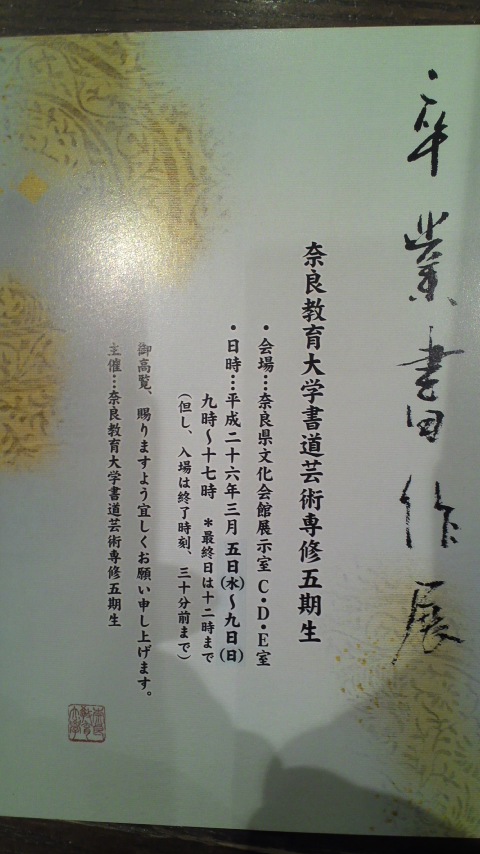 卒業書作展
奈良教育大学書道芸術専修五期生
・会場…奈良県文化会館展示室 C・D・E室
・日時…平成二十六年三月五日(水)〜九日(日)
九時〜十七時　＊最終日は十二時まで
(但し、入場は終了時刻、三十分前まで)
御高覧、賜りますよう宜しくお願い申し上げます。
主催…奈良教育大学書道芸術専修五期生